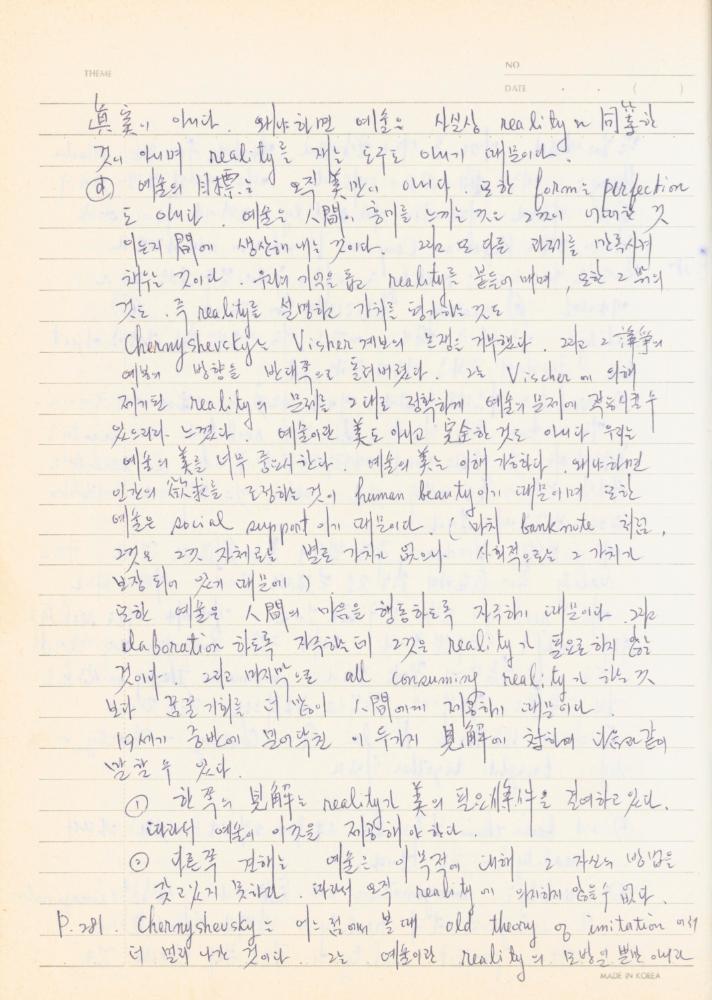 THEME
NO
DATE . . ( )
眞実이 아니다. 왜냐하면 예술은 사실상 reality와 同等한
것이 아니며 reality를 재는 도구도 아니기 때문이다.
ⓓ 예술의 目標는 오직 美만이 아니다. 또한 form은 perfection
도 아니다. 예술은 人間이 흥미를 느끼는 것은 그것이 어떠한 것
이든지 間에 생산해 내는 것이다. 그리고 또 다른 과제를 만족시켜
채우는 것이다. 우리의 기억을 돕고 reality를 붙들어 매며, 또한 그 밖의
것도. 즉 reality를 설명하고 가치를 평가하는 것도
Chernyshevsky는 Visher 계보의 논쟁을 거부했다. 그리고 그 論爭의
예봉의 방향을 반대쪽으로 돌려버렸다. 그는 Vischer에 의해
제기된 reality의 문제를 그대로 정확하게 예술의 문제에 적용시킬 수
있으리라 느꼈다. 예술이란 美도 아니고 完全한 것도 아니다 우리는
예술의 美를 너무 중요시한다. 예술의 美는 이해 가능하다. 왜냐하면
인간의 欲求를 조정하는 것이 human beauty이기 때문이며 또한
예술은 social support이기 때문이다. (마치 banknote 처럼,
그것은 그것 자체로는 별로 가치가 없으나 사회적으로는 그 가치가
보장되어 있기 때문에)
또한 예술은 人間의 마음을 행동하도록 자극하기 때문이다. 그리고
elaboration 하도록 자극하는데 그것은 reality가 필요로 하지 않는
것이다. 그리고 마지막으로 all consuming reality가 하는 것
보다 꿈꿀 기회를 더 많이 人間에게 제공하기 때문이다.
19세기 중반에 밀어닥친 이 두가지 見解에 참하여 다음과 같이
말할 수 있다.
① 한 쪽의 見解는 reality가 美의 필요條件을 결여하고 있다.
따라서 예술이 이것을 제공해야 한다
② 다른쪽 견해는 예술은 이 목적에 대해 그 자신의 방법을
갖고 있지 못하다. 따라서 오직 reality에 의지하지 않을 수 없다.
P. 281. Chernyshevsky는 어느 점에서 볼 때 old theory of imitation 에서
더 멀리 나간 것이다. 그는 예술이란 reality의 모방일 뿐만 아니라
MADE IN KOREA